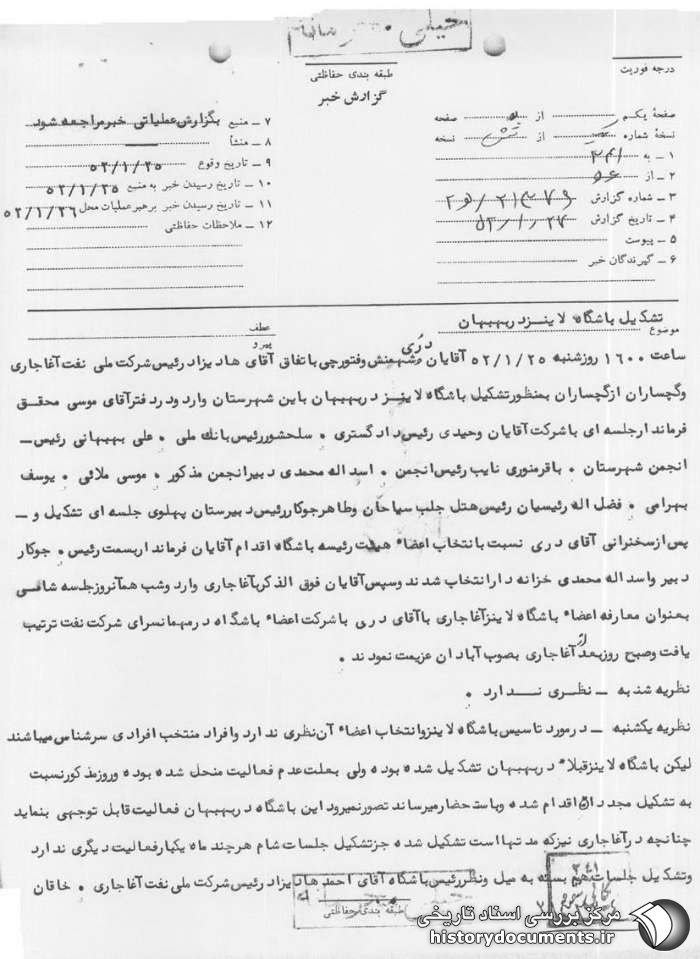 خیلی محرمانه
طبقه بندی حفاظتی
گزارش خبر
درجه فوریت
صفحهٔ یکم از صفحه
نسخهٔ شماره از شش نسخه
۱ ـ به ۳۴۱
۲ ـ از
۳ ـ شماره گزارش
۴ ـ تاریخ گزارش ۵۲/۱/۲۷
۵ ـ پیوست
۶ ـ گیرندگان خبر
۷ ـ منبع بگزارش عملیاتی خبر مراجعه شود
۸ ـ منشأ
۹ ـ تاریخ وقوع ۵۲/۱/۲۵
۱۰ ـ تاریخ رسیدن خبر به منبع ۵۲/۱/۲۵
۱۱ ـ تاریخ رسیدن خبر برهبر عملیات محل ۵۲/۱/۲۶
۱۲ ـ ملاحظات حفاظتی
موضوع تشکیل باشگاه لاینز در بهبهان
عطف
پیرو
ساعت ۱۶۰۰ روز شنبه ۵۲/۱/۲۵ آقایان دُرّی و شهمنش وفتورچی با تفاق آقای هادیزاد رئیس شرکت ملی نفت آغاجاری
وگچساران ازگچساران بمنظور تشکیل باشگاه لاینز در بهبهان باین شهرستان وارد ودر دفتر آقای موسی محقق
فرماندار جلسه ای با شرکت آقایان وحیدی رئیس دادگستری ۰ سلحشور رئیس بانک ملی ۰ علی بهبهانی رئیس ـ
انجمن شهرستان ۰ باقر منوری نایب رئیس انجمن ۰ اسد اله محمدی دبیر انجمن مذکور ۰ موسی ملائی ۰ یوسف
بهرامی ۰ فضل اله رئیسیان رئیس هتل جلب سیاحان وطاهر جوکار رئیس دبیرستان پهلوی جلسه ای تشکیل و ـ
پس از سخنرانی آقای دری نسبت با نتخاب اعضاء هیئت رئیسه باشگاه اقدام آقایان فرماندار بسمت رئیس ۰ جوکار
دبیر واسد اله محمدی خزانه دار انتخاب شدند وسپس آقایان فوق الذکر بآغاجاری وارد وشب همآنروز جلسه شامی
بعنوان معارفه اعضاء باشگاه لاینز آغاجاری با آقای دری با شرکت اعضاء باشگاه در مهمانسرای شرکت نفت ترتیب
یافت وصبح روز بعد از آغاجاری بصوب آبادان عزیمت نمودند ۰
نظریه شنبه ـ نظری ندارد ۰
نظریه یکشنبه ـ در مورد تاسیس باشگاه لاینز وانتخاب اعضاء آن نظری ندارد وافراد منتخب افرادی سرشناس میباشند
لیکن باشگاه لاینز قبلاً در بهبهان تشکیل شده بوده ولی بعلت عدم فعالیت منحل شده بوده وروز مذکور نسبت
به تشکیل مجدد آن اقدام شده وباستحضار میرساند تصور نمیرود این باشگاه در بهبهان فعالیت قابل توجهی بنماید
چنانچه در آغاجاری نیز که مدتها است تشکیل شده جز تشکیل جلسات شام هر چند ماه یکبار فعالیت دیگری ندارد
وتشکیل جلسات هم بسته به میل ونظر رئیس باشگاه آقای احمد هادیزاد رئیس شرکت ملی نفت آغاجاری ۰ خاقان
طبقه بندی حفاظتی
مرکز بررسی اسناد تاریخی
historydocuments.ir